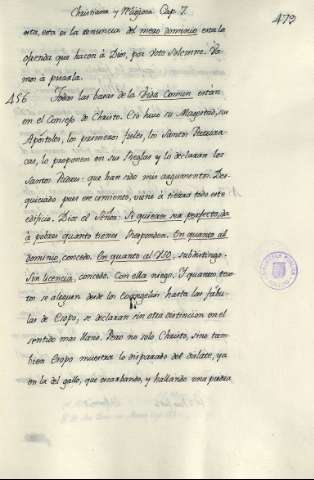 Christiana y Religiosa Cap. 7.
479
esta, esta es la renuncia del mero dominio en la
ofrenda que hacen à Dios, por Voto solemne. Va-
mos à pisarla.
456 Todas las basas de la Vida Comun estàn
en el Consejo de Christo. Crò hizo su Magestad, sus
Apòstoles, los primeros fieles, los Santos Patriar-
cas, lo proponen en sus Reglas y lo declaran los
Santos Padres: que han sido mis argumentos. Des-
quiciado pues ese armonico, viene à tierra todo este
edificio. Dice el Señor: Si quieres ser perfecto, dà
à pobres quanto tienes. Responden. En quanto al
dominio, concedo. En quanto al uso, subdistingo.
Sin licencia, concedo. Con ella niego. Y quantos tex-
tos se aleguen desde los Evangelios hasta las fabu-
las de Esopo, se declaran sin otra distincion en el
sentido mas llano. Pero no solo Christo, sino tam-
bien Esopo muestra lo disparado del dislate, ya
en la del gallo, que escarbando, y hallando una piedra